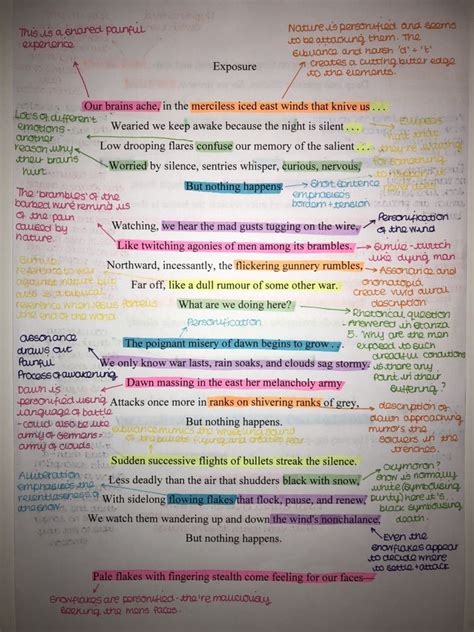 This is a shared painful
experience
Nature is personified and seems
to be attacking them. The
sibilance and harsh 'd' + 't'
creates a cutting bitter edge
to the elements.
Exposure
Our brains ache, in the merciless iced east winds that knive us . . .
Lots of different
emotions-
another
reason why
their brains
hurt.
Wearied we keep awake because the night is silent . . .
Low drooping flares confuse our memory of the salient . . .
Worried by silence, sentries whisper, curious, nervous,
But nothing happens.
Ellipses
that
they're
for something
to
Short sentence
emphasises
boredom + tension
The brambles of the
barbed wire remind us
of the pain
caused by
nature.
Watching, we hear the mad gusts tugging on the wire,
Personification
of the wind
Like twitching agonies of men among its brambles.
Simile - twitch
like dying man
Northward, incessantly, the flickering gunnery rumbles,
Assonance and
onomatopoeia
create vivid aural
description
reference to war
against nature but
also is a biblical
reference when Jesus
Far off, like a dull rumour of some other war.
What are we doing here?
Rhetorical question
- answered in stanza
5. Why are the men
exposed to such
dreadful conditions
is there any
point in their
suffering?
Personification
The poignant misery of dawn begins to grow . . .
assonance
draws out
painful
process of awakening
We only know war lasts, rain soaks, and clouds sag stormy.
Dawn massing in the east her melancholy army
Dawn is
personified using
language of battle
- could also be like
army of Germans-
army of clouds.
Attacks once more in ranks on shivering ranks of grey,
But nothing happens.
description of
dawn approaching
mirrors the
soldiers in the
trenches.
sibilance mimics the whistling sound
of the bullets flying and creates fear.
Sudden successive flights of bullets streak the silence.
Less deadly than the air that shudders black with snow,
oxymoron?
Snow is normally
white (symbolising
purity) here it's
black symbolising
death.
Alliteration
emphasises the
relentlessness of
the snow
With sidelong flowing flakes that flock, pause, and renew,
We watch them wandering up and down the wind's nonchalance,
But nothing happens.
Even the
snowflakes appear
to decide where
to settle + attack
Pale flakes with fingering stealth come feeling for our faces—
Snowflakes are personified - they're maliciously
seeking the mens faces.